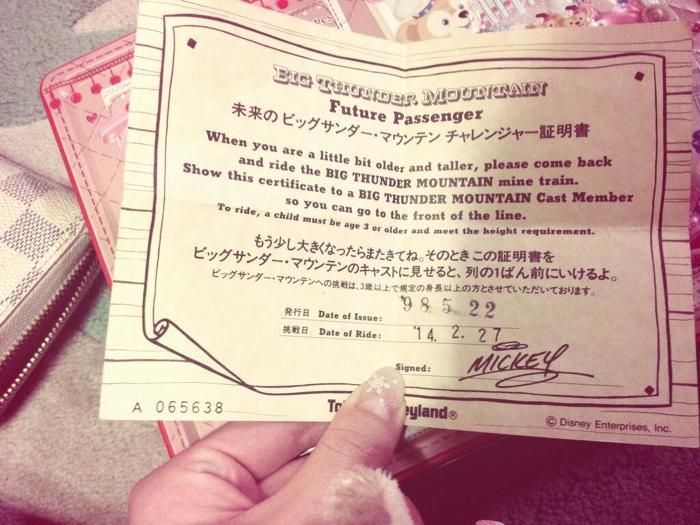 BIG THUNDER MOUNTAIN
Future Passenger
未来の ビッグサンダー・マウンテン チャレンジャー証明書
When you are a little bit older and taller, please come back
and ride the BIG THUNDER MOUNTAIN mine train.
Show this certificate to a BIG THUNDER MOUNTAIN Cast Member
so you can go to the front of the line.
To ride, a child must be age 3 or older and meet the height requirement.
もう少し大きくなったらまたきてね。そのときこの証明書を
ビッグサンダー・マウンテンのキャストに見せると、列の1ばん前にいけるよ。
ビッグサンダー・マウンテンへの挑戦は、3歳以上で規定の身長以上の方とさせていただいております。
発行日 Date of Issue: '98.5.22
挑戦日 Date of Ride: '14. 2. 27
Signed: MICKEY
A 065638
© Disney Enterprises, Inc.